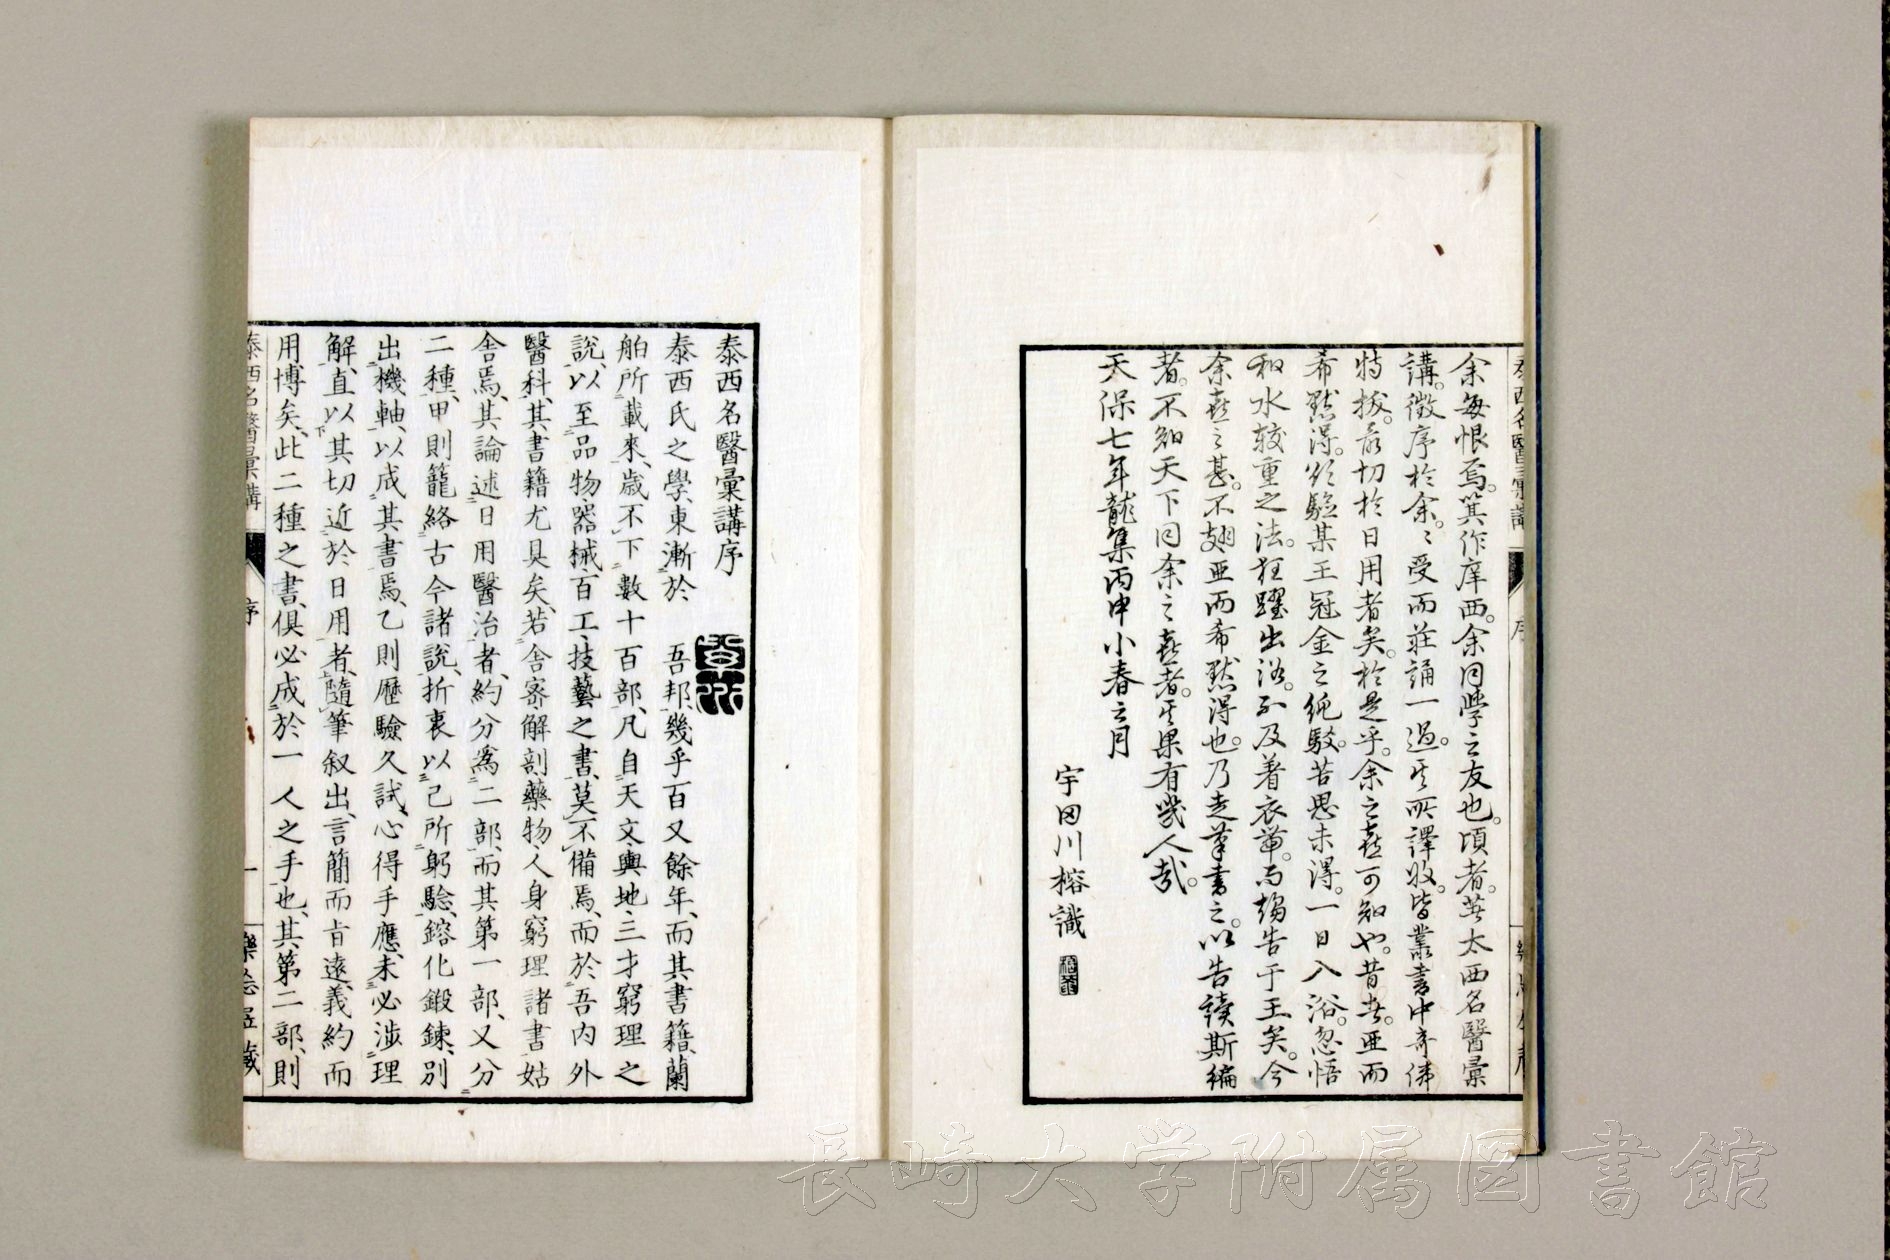 余每恨焉。箕作庠西。余同學之友也。頃者。著太西名醫彙
講。徵序於余。〻受而莊誦一過。其所譯收。皆叢書中奇俤
特拔。最切於日用者矣。於是乎。余之喜可知也。昔者。亜而
希默得。欲驗某王冠金之純駁。苦思未得。一日入浴。忽悟
和水較重之法。狂躍出浴。不及着衣帶。而趨告于王矣。今
余喜之甚。不翅亜而希默得也。乃走筆書之。以告讀斯編
者。不知天下同余之喜者。其果有幾人哉。
天保七年龍集丙申小春之月
宇田川榕識
泰西名醫彙講
序
泰西名醫彙講序
泰西氏之學、東漸於 吾邦、幾乎百又餘年、而其書籍、蘭
舶所載來、歲不下數十百部、凡自天文輿地三才窮理之
說、以至品物器械百工技藝之書、莫不備焉、而於吾內外
醫科、其書籍尤具矣、若舍密解剖藥物人身窮理諸書姑
舍焉、其論述日用醫治者、約分爲二部、而其第一部、又分
二種、甲則籠絡古今諸說、折衷以己所躬驗、鎔化鍛鍊、別
出機軸、以成其書焉、乙則歷驗久試、心得手應、未必涉理
解、直以其切近於日用者、隨筆叙出、言簡而旨遠、義約而
用博矣、此二種之書、俱必成於一人之手也、其第二部、則
泰西名醫彙講
序
一
長崎大学附属図書館